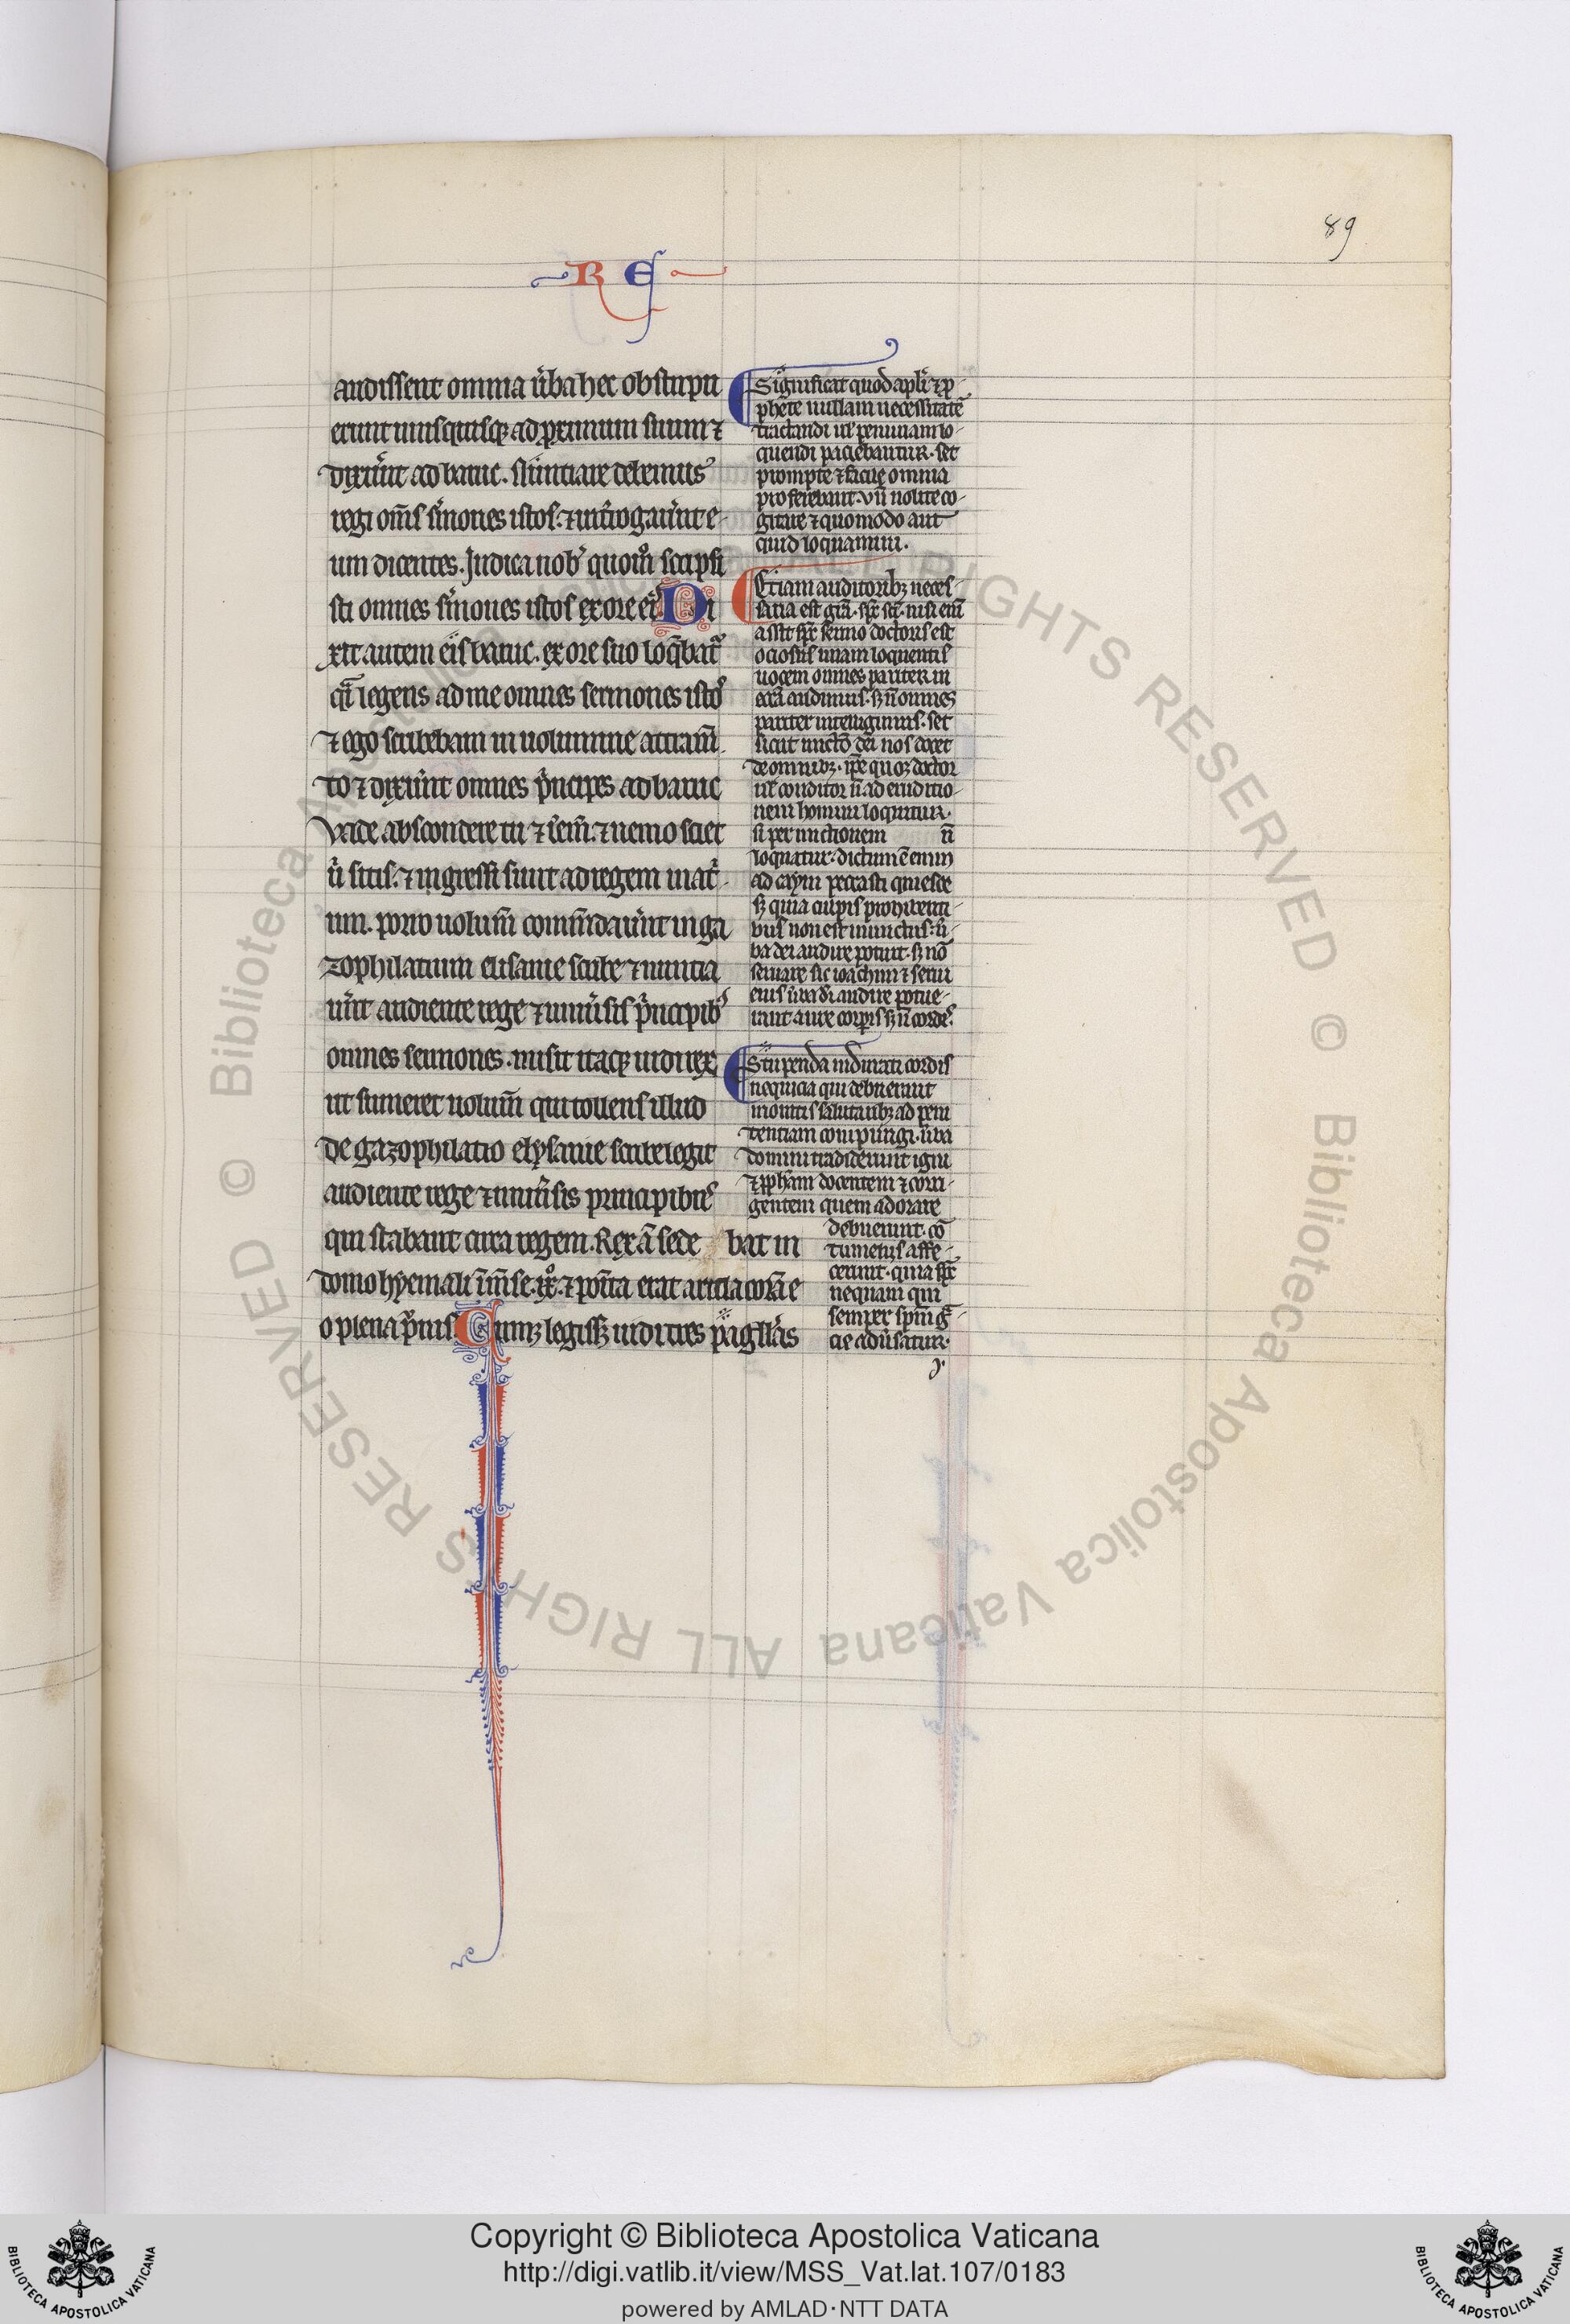 89
R E
audissent omnia ũba hec obstupu
erunt unusquisq; ad proximum suum ⁊
dixer̃nt ad baruc. Nũntiare debemus
regi om̃s sermones istos. ⁊ int̃rogauer̃nt e
um dicentes. Indica nob̃ quom̊ scripsi
sti omnes sermones istos ex ore ei᷒ Di
xit autem eis baruc. ex ore suo loq̃bat᷑
q̃si legens ad me omnes sermones isto᷒
⁊ ego scribebam in uolumine attram̃
to ⁊ dixer̃nt omnes p̃ncipes ad baruc
vade abscondere tu ⁊ ierem̃. ⁊ nemo sciet
ũ sitis. ⁊ ingressi sunt ad regem in at̃
um. porro uolum̃ com̃ndauer̃nt in ga
zophilatium elisame scribe ⁊ nuntia
uer̃nt audiente rege ⁊ uniũsis p̃ncipib᷒
omnes sermones. misit itaq; iudi rex
ut sumeret uolum̃ qui tollens illud
de gazophilatio elysame scribe legit
audiente rege ⁊ uniũsis principibu᷒
qui stabant circa regem. Rex ã sede bat in
domo hyemali in m̃se. ix̊. ⁊ posita erat arula corã e
o plena p̃nis Cumq; legiss; iudi tres pagellas
Significat quod apl̃i ⁊ p
phete nullam necessitatẽ
tractandi uł penuriam lo
quendi paciebantur. set
prompte ⁊ facile omnia
proferebant. vñ nolite co
gitare ⁊ quomodo aut
quid loquamini.
Etiam auditorib; neces
saria est grã. sp̃c sc̃i. nisi eñi
assit sp̃c sermo doctoris est
ociosus unam loquentis
uocem omnes pariter in
eccłia audimus. s; ñ omnes
pariter intelligimus. set
sicut unctõ dei nos docet
de omnib;. ip̃e quoq; doctor
uł conditor ñ ad eruditio
nem homini loquitur.
si per unctionem ñ
loquatur. dictum ẽ enim
ad caym peccasti quiesce
s; quia culpis prohibenti
bus non est inunctus. ũ
ba dei audire potuit. s; nõ
seruare sic ioachim ⁊ serui
eius ũba di audire potue
runt aure corporis s; ñ cordis.
Stupenda indurati cordis
nequicia qui debuerunt
monitis salutarib; ad peni
tentiam compungi. ũba
domini tradiderunt igni
⁊ p̃pham docentem ⁊ corri
gentem quem adorare
debuerunt. cõ
tumeliis affe
cerunt. quia sp̃c
nequam qui
semper sp̃m g̃
cie adũsatur.
Copyright © Biblioteca Apostolica Vaticana
http://digi.vatlib.it/view/MSS_Vat.lat.107/0183
powered by AMLAD·NTT DATA
BIBLIOTECA APOSTOLICA VATICANA
BIBLIOTECA APOSTOLICA VATICANA
© Biblioteca Apostolica Vaticana ALL RIGHTS RESERVED
© Biblioteca Apostolica Vaticana ALL RIGHTS RESERVED